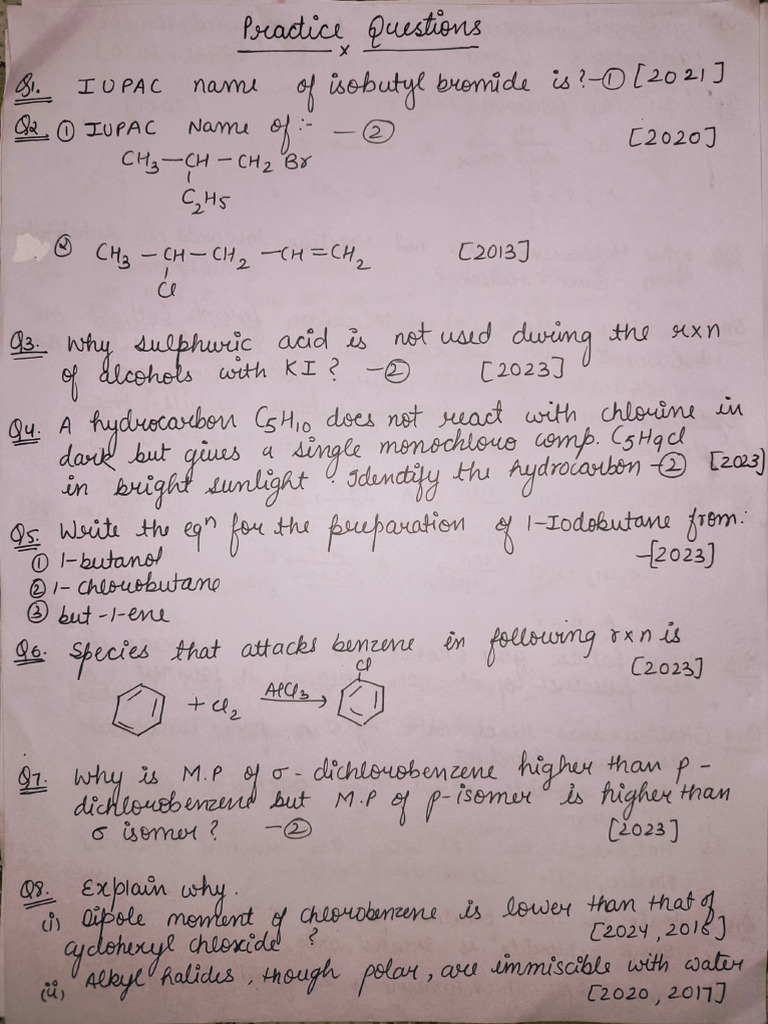 Practice Questions
x
Q1. IUPAC name of isobutyl bromide is? - ① [2021]
Q2 ① IUPAC Name of :- - ② [2020]
CH3 - CH - CH2 Br
C2H5
② CH3 - CH - CH2 - CH = CH2 [2013]
Cl
Q3. Why sulphuric acid is not used during the rxn
of alcohols with KI? - ② [2023]
Q4. A hydrocarbon C5H10 does not react with chlorine in
dark but gives a single monochloro comp. C5H9Cl
in bright sunlight. Identify the hydrocarbon - ② [2023]
Q5. Write the eqn for the preparation of 1-Iodobutane from:
① 1-butanol - [2023]
② 1-chlorobutane
③ but-1-ene
Q6. Species that attacks benzene in following rxn is
[2023]
Cl
+ Cl2 AlCl3
Q7. Why is M.P of σ-dichlorobenzene higher than p-
dichlorobenzene but M.P of p-isomer is higher than
σ isomer? - ② [2023]
Q8. Explain why.
(i) Dipole moment of chlorobenzene is lower than that of
cyclohexyl chloride? [2024, 2016]
(ii) Alkyl halides, though polar, are immiscible with water
[2020, 2017]